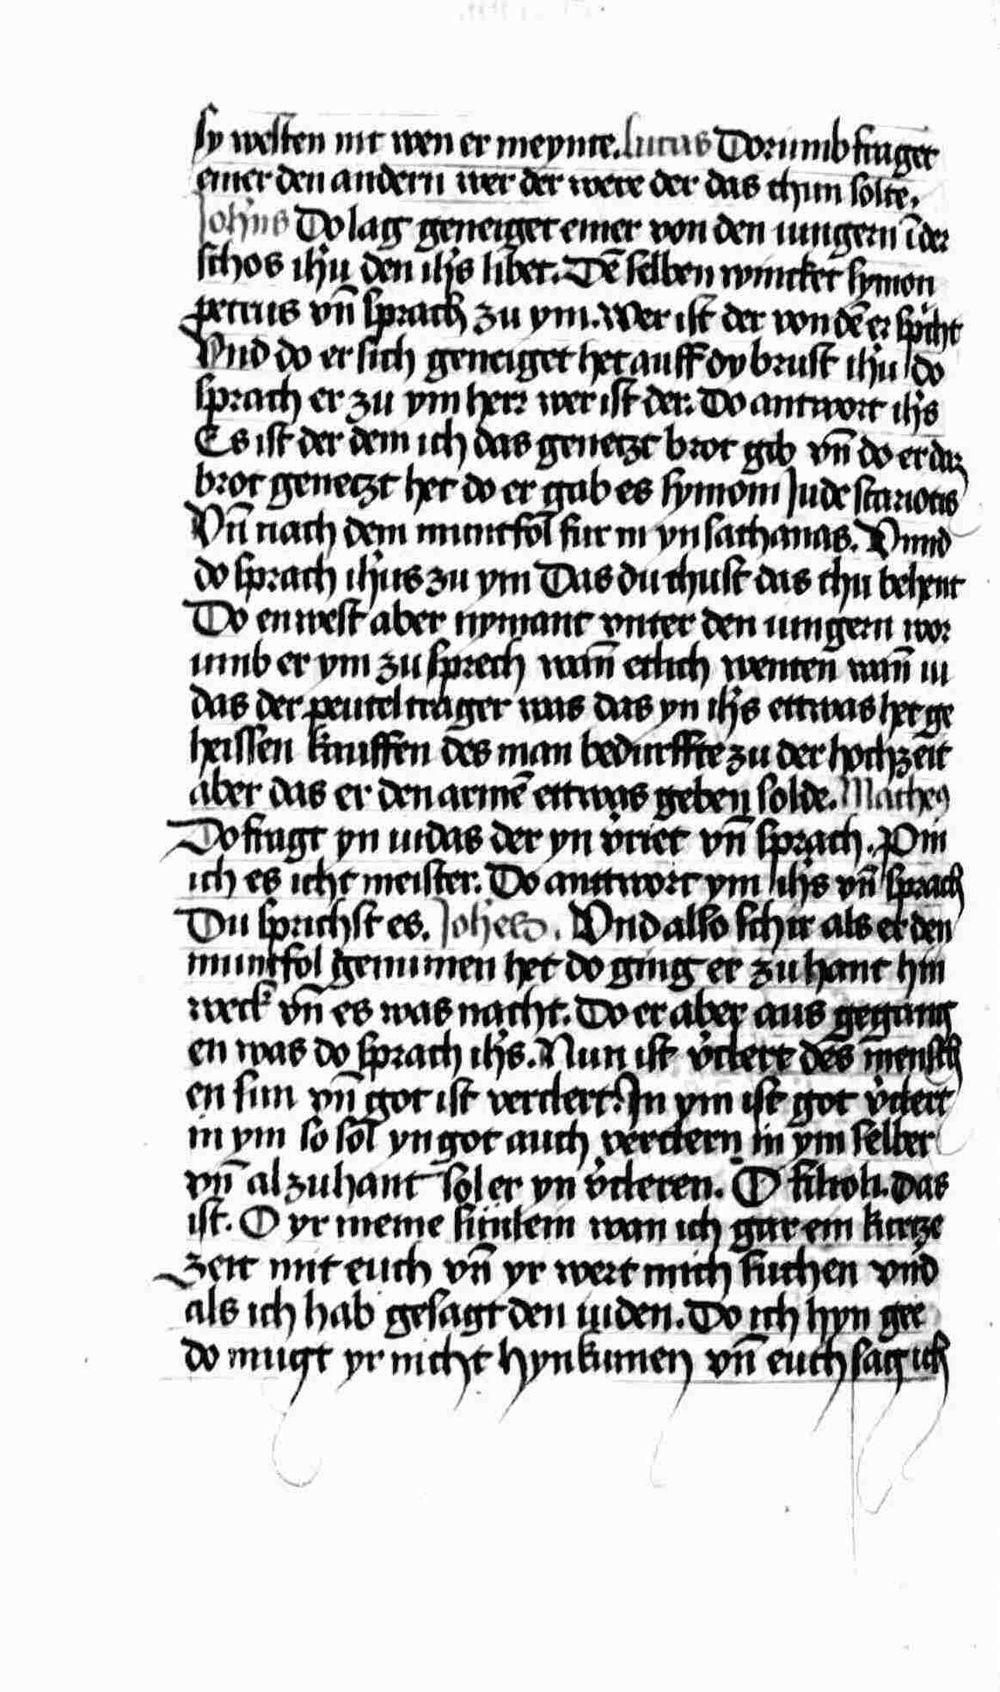 sy westen nit wen er meynte. Lucas Dorumb fraget
einer den andern wer der were der das thun solte.
Joh's Do lag geneiget einer von den iungern ī der
schos ih'u den ih's libet. Dē selben wincket symon
petrus vn̄ sprach zu ym. Wer ist der von dē er spͥcht
Vnd do er sich geneiget het auff dy brust ih'u do
sprach er zu ym herr wer ist der. Do antwort ih's
Es ist der dem ich das genetzt brot gib vn̄ do er daz
brot genetzt het do er gab es symoni Jude scariotis
Vn̄ nach dem muntfol fur in yn sathanas. Vnnd
do sprach ih'us zu ym Das du thust das thu behent
Do en west aber nymant vnter den iungern wor
umb er ym zu sprech wan̄ etlich wenten wan̄ iu
das der peutel trager was das yn ih's ettwas het ge
heissen kauffen des man bedurffte zu der hochzeit
aber das er den armē ettwas geben solde. Matheꝰ
Do fragt yn iudas der yn v'riet vn̄ sprach. Pin
ich es icht meister. Do anttwort ym ih's vn̄ sprach
Du sprichst es. Joh'es. Vnd also schir als er den
muntfol genumen het do ging er zu hant hin
weck vn̄ es was nacht. Do er aber aus gegang
en was do sprach ih's. Nun ist v'clert des mensch
en sun vn̄ got ist verclert. In ym ist got v'clert
in ym so sol yn got auch verclern in ym selber
vn̄ al zu hant sol er yn v'cleren. O filioli. das
ist. O yr meine sunlein wan ich gar ein kurtze
zeit mit euch vn̄ yr wert mich suchen vnd
als ich hab gesagt den iuden. Do ich hyn gee
do mugt yr nicht hyn kumen vn̄ euch sag ich